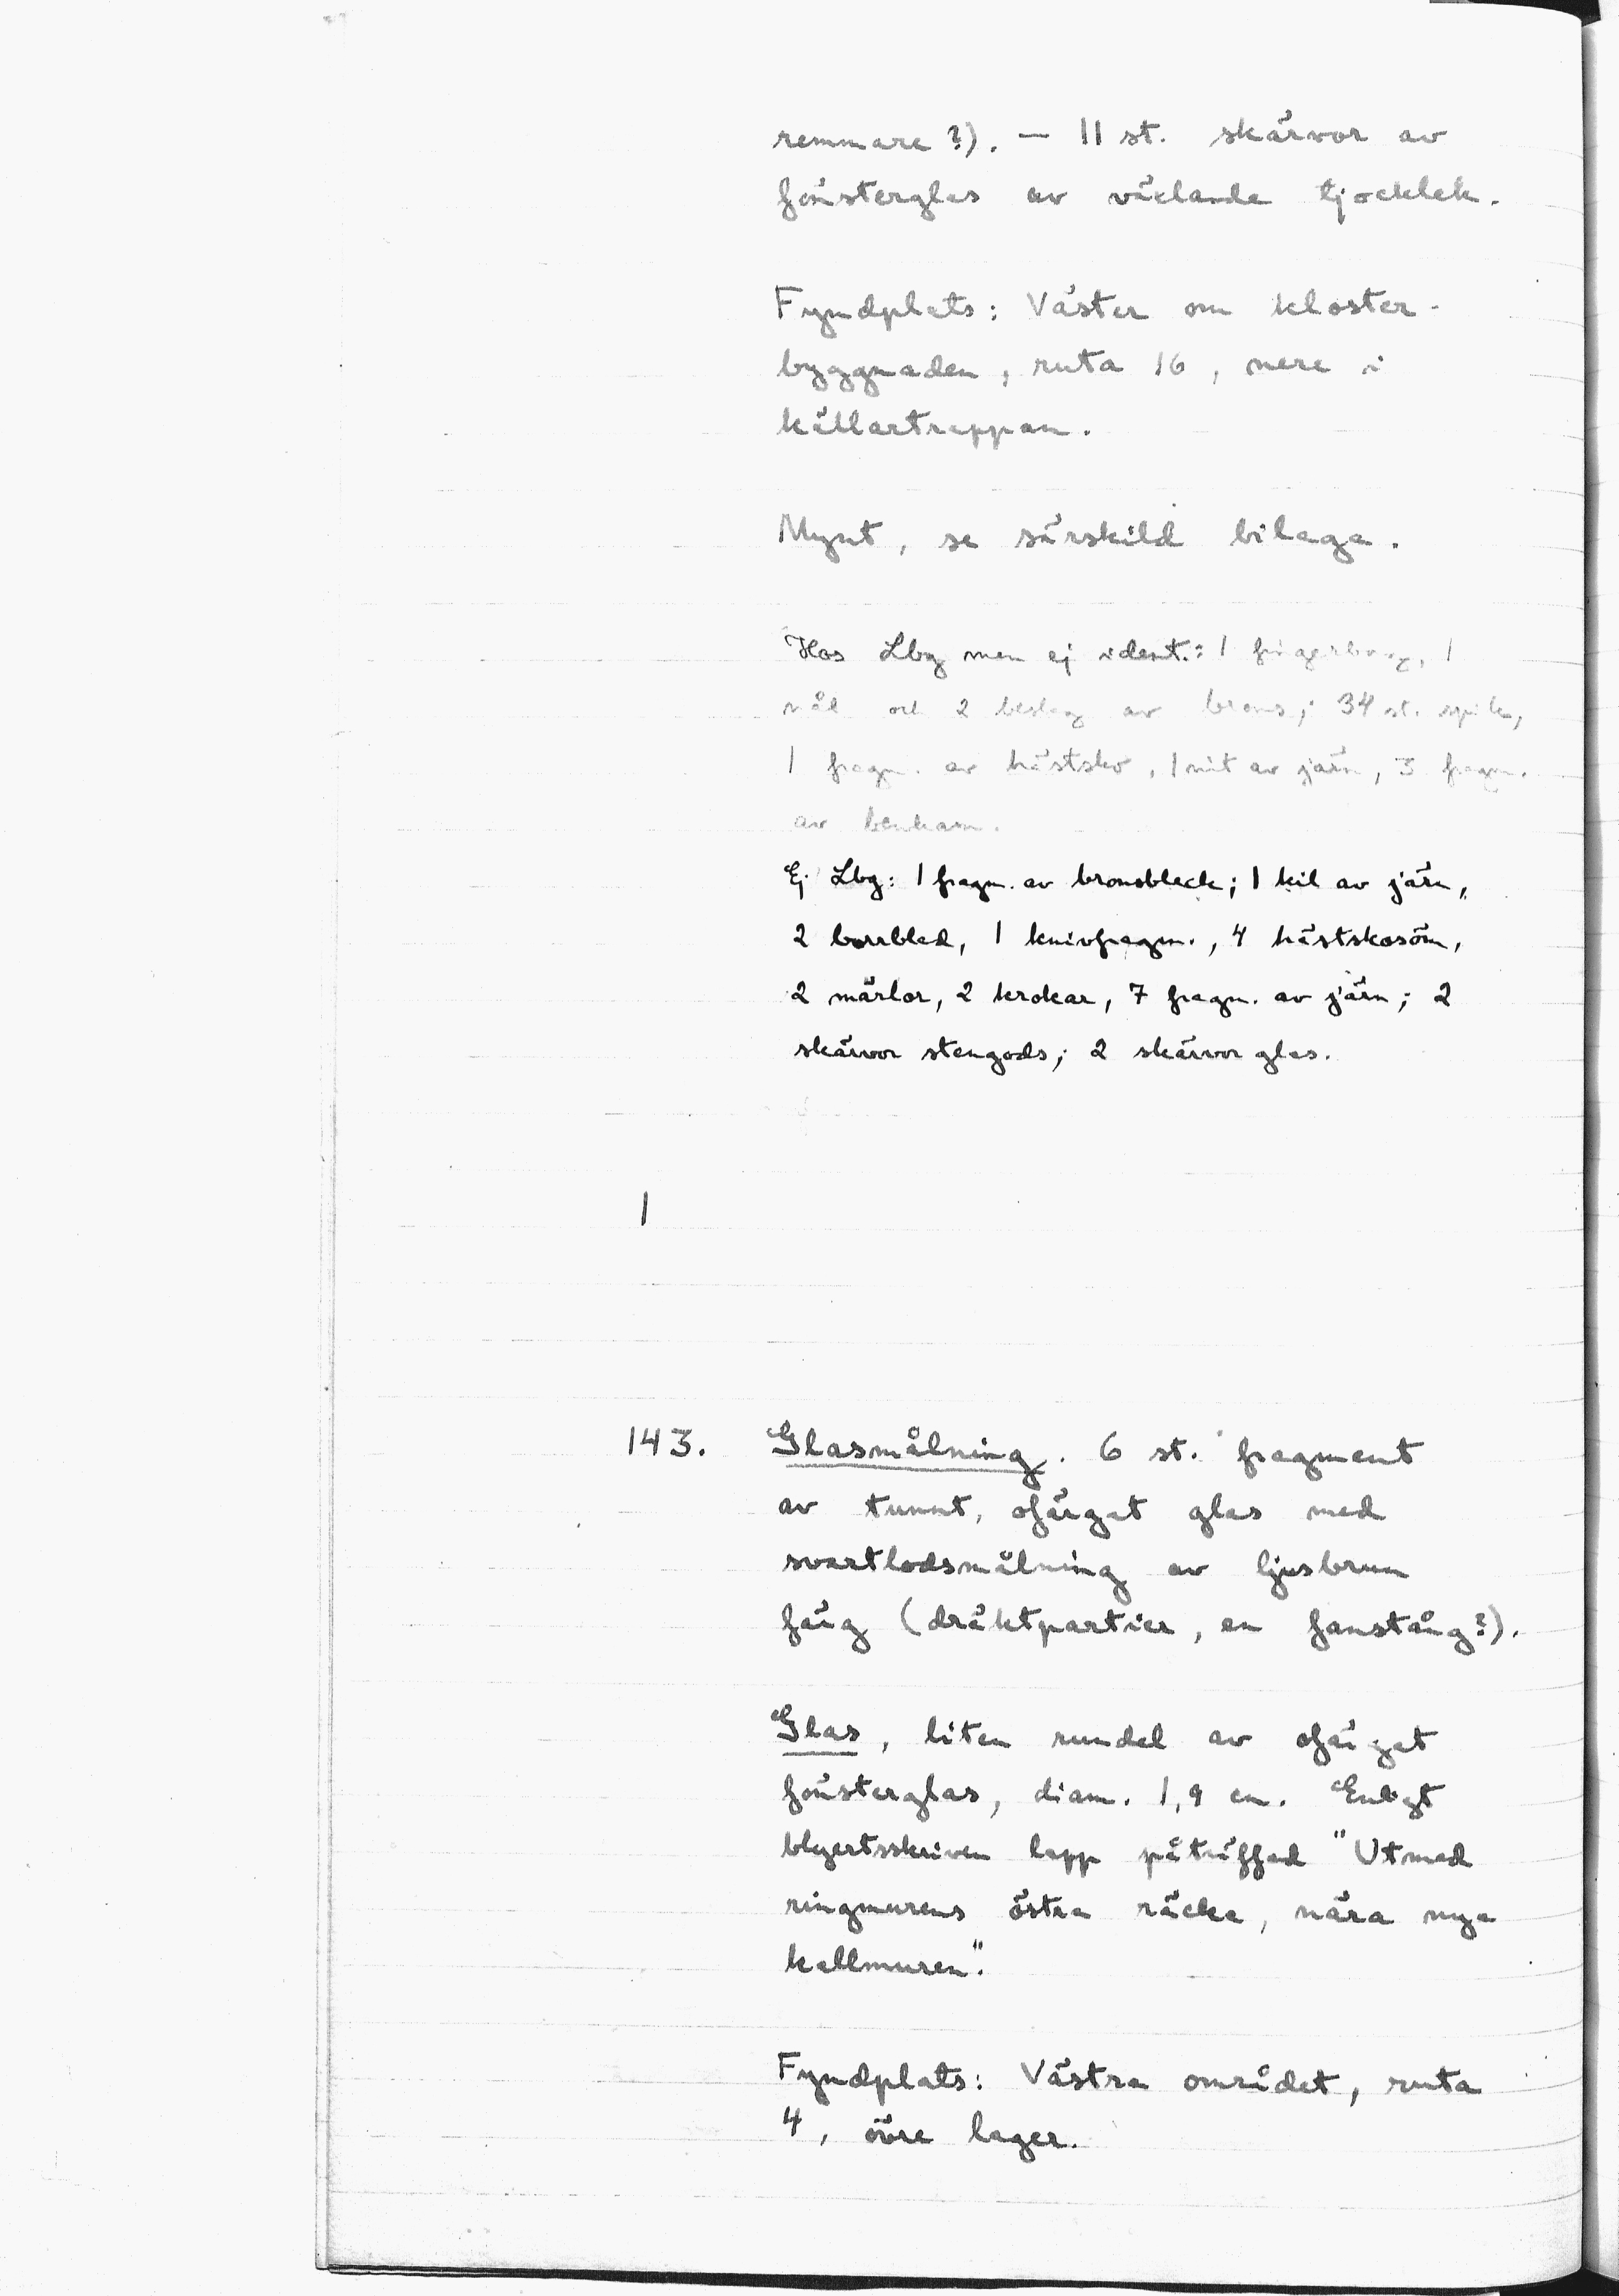 remmare?). — 11 st. skärvor av
fönsterglas av växlande tjocklek.
Fyndplats: Väster om kloster-
byggnaden, ruta 16, nere i
källartrappan.
Mynt, se särskild bilaga.
Hos Lbg men ej ident.: 1 fingerborg, 1
nål och 2 beslag av brons; 34 st. spik,
1 fragm. av hästsko, 1 nit av järn, 3 fragm.
av benkam.
Ej Lbg: 1 fragm. av bronsbleck; 1 kil av järn,
2 borrblad, 1 knivfragm., 4 hästskosöm,
2 märlor, 2 krokar, 7 fragm. av järn; 2
skärvor stengods; 2 skärvor glas.
1
143. Glasmålning. 6 st. fragment
av tunnt, ofärgat glas med
svartlodsmålning av ljusbrun
färg (dräktpartier, en fanstång?).
Glas, liten rundel av ofärgat
fönsterglas, diam. 1,9 cm. Enligt
blyertsskriven lapp påträffad "Utmed
ringmurens östra räcka, nära nya
kallmuren".
Fyndplats: Västra området, ruta
4, övre lager.